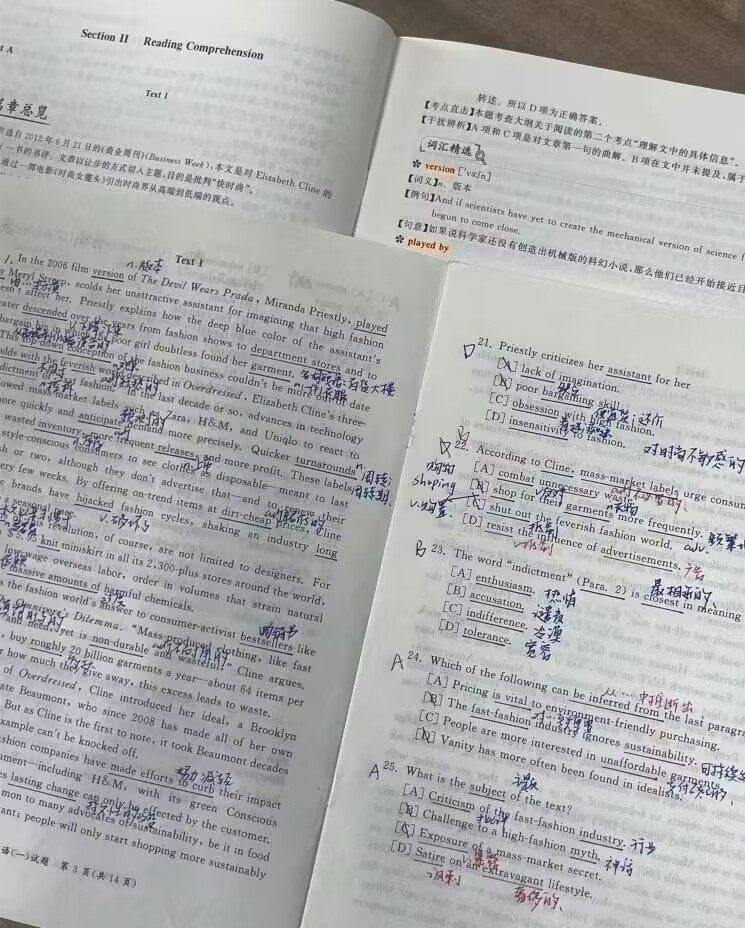 Section II Reading Comprehension
t A
Text 1
章总览
选自 2012 年 6 月 21 日的《商业周刊》(Business Week),本文是对 Elizabeth Cline 的
一书的书评。文章以让步的方式切入主题,目的是批判“快时尚”。
通过一部电影《时尚女魔头》引出时尚界从高端到低端的观点。
转述。所以 D 项为正确答案。
【考点直击】本题考查大纲关于阅读的第二个考点“理解文中的具体信息”。
【干扰辨析】A 项和 C 项是对文章第一句的曲解。B 项在文中并未提及,属于
词汇精选
version
【词义】n. 版本
【例句】And if scientists have yet to create the mechanical version of science f
begun to come close.
【句意】如果说科学家还没有创造出机械版的科幻小说,那么他们已经开始接近目
played by
Text 1
n.版本
In the 2006 film version of The Devil Wears Prada, Miranda Priestly, played
Meryl Streep, scolds her unattractive assistant for imagining that high fashion
esn't affect her. Priestly explains how the deep blue color of the assistant's
eater descended over the years from fashion shows to department stores and to
bargain bin in which the poor girl doubtless found her garment.
百货大楼
This top-down conception of the fashion business couldn't be more out of date
odds with the feverish world described in Overdressed, Elizabeth Cline's three-
dictment of fast fashion. In the last decade or so, advances in technology
owed mass-market labels such as Zara, H&M, and Uniqlo to react to
more quickly and anticipate demand more precisely. Quicker turnarounds
wasted inventory, more frequent releases, and more profit. These labels
周转
周转期
style-conscious consumers to see clothes as disposable—meant to last
sh or two, although they don't advertise that—and to renew their
very few weeks. By offering on-trend items at dirt-cheap prices, Cline
brands have hijacked fashion cycles, shaking an industry long
a seasonal
v.破坏
his revolution, of course, are not limited to designers. For
knit miniskirt in all its 2,300-plus stores around the world,
low-wage overseas labor, order in volumes that strain natural
massive amounts of harmful chemicals.
s the fashion world's answer to consumer-activist bestsellers like
畅销书
Omnivore's Dilemma. "Mass-produced clothing, like fast
and need, yet is non-durable and wasteful," Cline argues.
, buy roughly 20 billion garments a year—about 64 items per
r how much they give away, this excess leads to waste.
of Overdressed, Cline introduced her ideal, a Brooklyn
ate Beaumont, who since 2008 has made all of her own
But as Cline is the first to note, it took Beaumont decades
xample can't be knocked off.
shion companies have made efforts to curb their impact
ment—including H&M, with its green Conscious
es lasting change can only be effected by the customer.
mon to many advocates of sustainability, be it in food
ant; people will only start shopping more sustainably
语(一)试题 第 3 页(共 14 页)
D 21. Priestly criticizes her assistant for her
[A] lack of imagination.
[B] poor bargaining skill.
[C] obsession with high fashion.
[D] insensitivity to fashion.
对时尚不敏感的
22. According to Cline, mass-market labels urge consum
[A] combat unnecessary waste.
购物
shoping
[B] shop for their garments more frequently.
[C] shut out the feverish fashion world.
adv.
[D] resist the influence of advertisements.
v.抵制
广告
B 23. The word "indictment" (Para. 2) is closest in meaning
最相近的
[A] enthusiasm. 热情
[B] accusation. 谴责
[C] indifference. 冷漠
[D] tolerance. 宽容
A 24. Which of the following can be inferred from the last paragra
从…中推断出
[A] Pricing is vital to environment-friendly purchasing.
[B] The fast-fashion industry ignores sustainability.
[C] People are more interested in unaffordable garments.
[D] Vanity has more often been found in idealists.
A 25. What is the subject of the text?
[A] Criticism of the fast-fashion industry. 行业
[B] Challenge to a high-fashion myth. 神话
[C] Exposure of a mass-market secret.
[D] Satire on an extravagant lifestyle.
讽刺
奢侈的